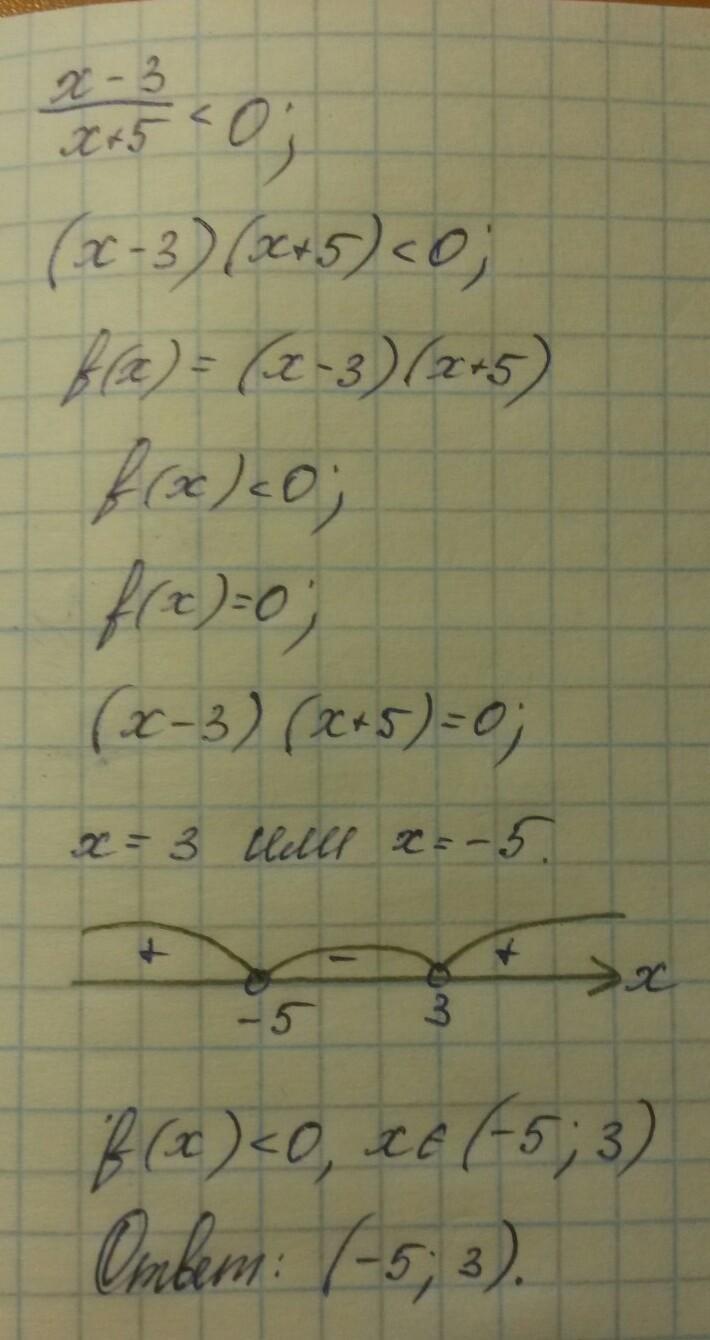 x - 3
x+5 < 0;
(x-3)(x+5)<0;
f(x) = (x-3)(x+5)
f(x)<0;
f(x)=0;
(x-3)(x+5)=0;
x = 3 или x = -5.
+ - + x
-5 3
f(x)<0, x∈(-5; 3)
Ответ: (-5; 3).